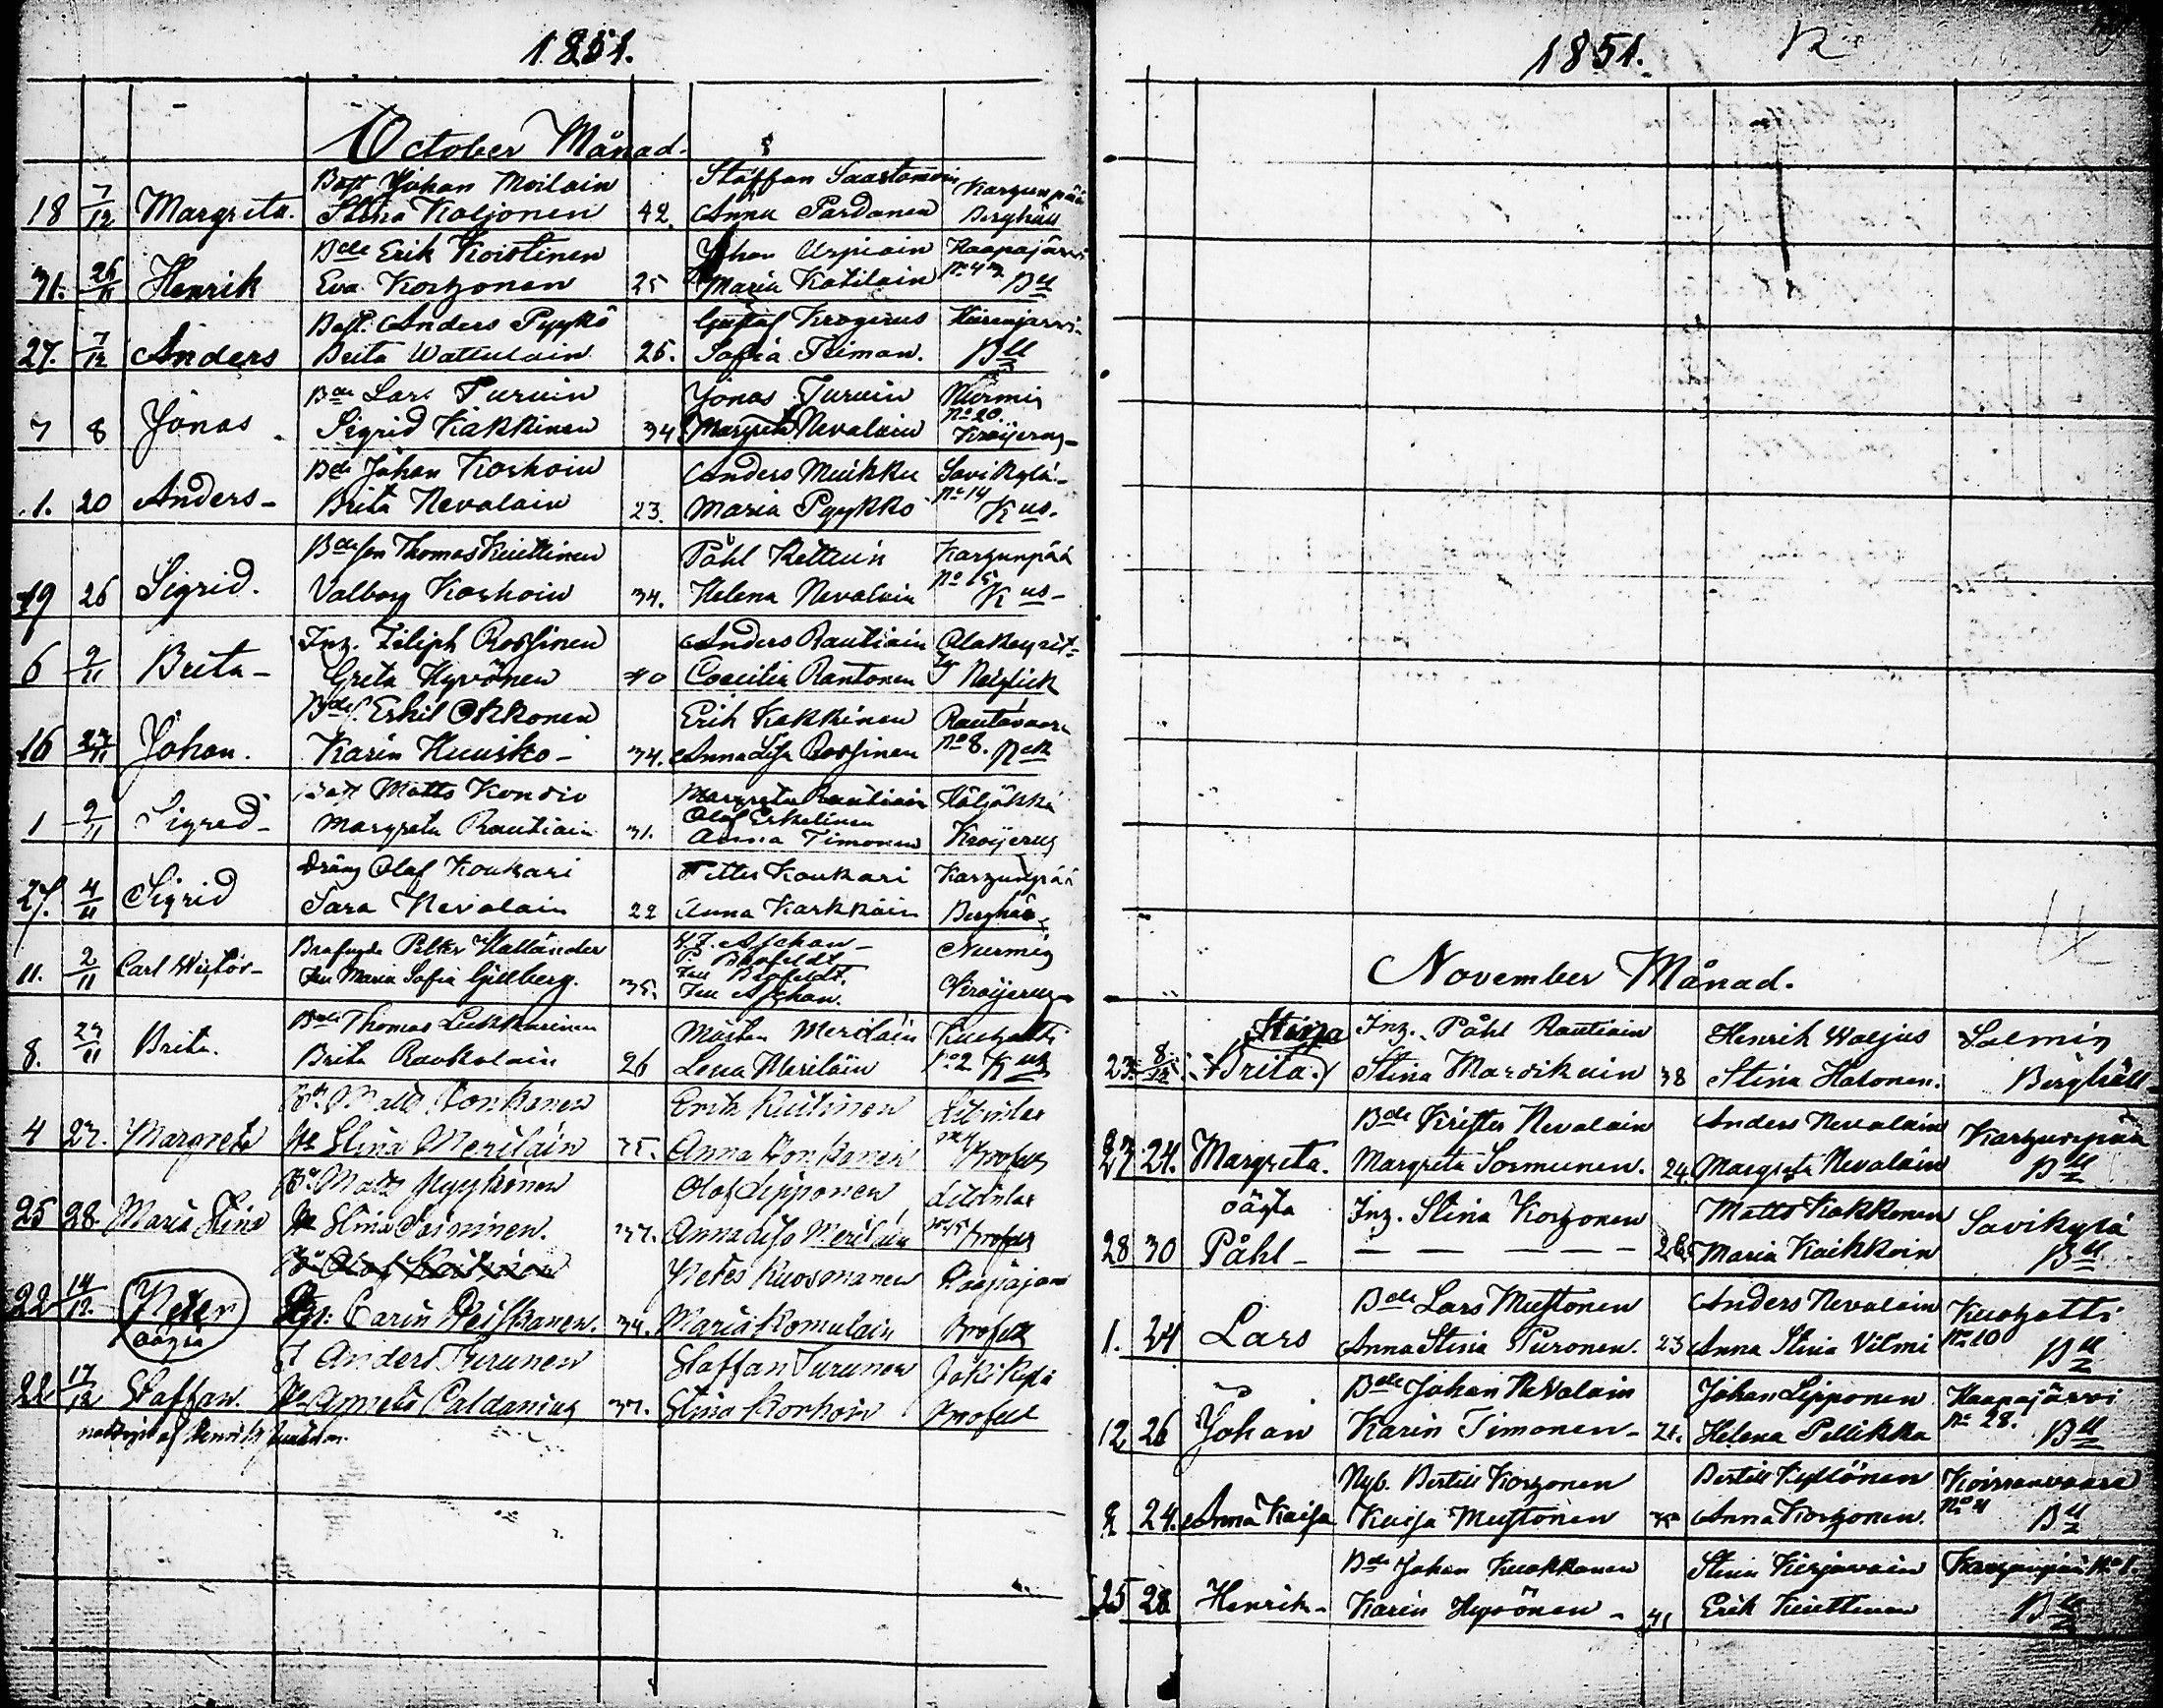 1851.
October Månad.
18 7/12 Margreta. Batt Johan Moilain Stina Koljonen 42. Staffan Saastamoin Anna Pardanen Karzunpää Berghäll
31. 26/11 Henrik Bde Erik Koistinen Eva Korhonen 25 Johan Urpiain Maria Katilain Haapajärvi Bll
27. 7/12 Anders Batt. Anders Pyykkö Brita Wattulain 26. Gustaf Krogerus Sofia Timan. Bll
7 8 Jonas Bde Lars Turuin Sigrid Kakkinen 34 Jonas Turuin Margreta Nevalain Nurmis No 20. Kroijerus
1. 20 Anders Bde Johan Korhoin Brita Nevalain 23. Anders Muikku Maria Pyykkö Savikylä No 14 Kus.
19 26 Sigrid. Bdeson Thomas Kuittinen Valborg Korhoin 34. Påhl Kettuin Helena Nevalain Karzunpää No 15 Kus
6 9/11 Brita Inz. Filiph Rossinen Greta Hyvönen 40 Anders Rautiain Coecilia Rantonen
16 27/11 Johan. Bdes. Eskil Okkonen Karin Huusko 34. Erik Kakkinen Anna Lisa Rossinen Rautavaara No 8.
1 9/11 Sigred Batt Matts Kondio Margreta Rautiain 31. Margreta Rautiain Olof Erkelinen Anna Timonen Höljäkkä Kroijerus
27. 4/11 Sigrid Dräng Olof Koukari Sara Nevalain 22 Petter Koukari Anna Karkkain Karzunpää Berghäll
11. 2/11 Carl Wictor Petter Hallånder Fru Maria Sofia Gyllberg. 35. Aschan P. Brofeldt Fru Brofeldt. Fru Aschan. Nurmis Kroijerus
8. 27/11 Brita. Bde Thomas Lukkarinen Brita Raukolain 26 Mårten Meriläin Lena Meriläin Kuohatti No 2 Kus
4 27. Margreta Matts Konkanen Stina Meriläin 35. Erik Kuitinen Anna Konkanen Brofelt
25 28. Maria Stina Matts Pyykönen Stina Saininen. 37. Olof Lipponen Anna Lisa Meriläin Brofelt
22 14/12. Peter oägta Carin Heiskanen. 34. Petes Kuosmanen Maria Komulain Haapajärvi Brofelt
22 17/12 Staffan. Anders Turunen Paldanius 37. Staffan Turunen Stina Korhoin Jokikylä Brofelt
1851.
12
November Månad.
23. 8/12. Stina (Brita.) Inz. Påhl Rautiain Stina Mardikain 38 Henrik Waljus Stina Halonen. Salmis Berghäll
27 24. Margreta. Bde Krister Nevalain Margreta Sormunen. 24. Anders Nevalain Margreta Nevalain Karzunpää Bll
28 30 oägta Påhl Inz. Stina Korhonen 26. Matts Kakkonen Maria Kaikkoin Savikylä Bll
1. 24 Lars Bde Lars Mustonen Anna Stina Puronen. 23 Anders Nevalain Anna Stina Vilmi Kuohatti No 10 Bll
12 26 Johan Bde Johan Nevalain Karin Timonen 21. Johan Lipponen Helena Pellikka Haapajärvi No 28. Bll
2 24. Anna Kaisa Nyb. Bertill Korhonen Kaisa Mustonen Bertill Kyllönen Anna Korhonen. Koirranvaara No 4 Bll
25 28 Henrik Bde Johan Kuokkanen Karin Hyvönen 41 Stina Kirjavain Erik Kuittinen Karzunpää No 1. Bll